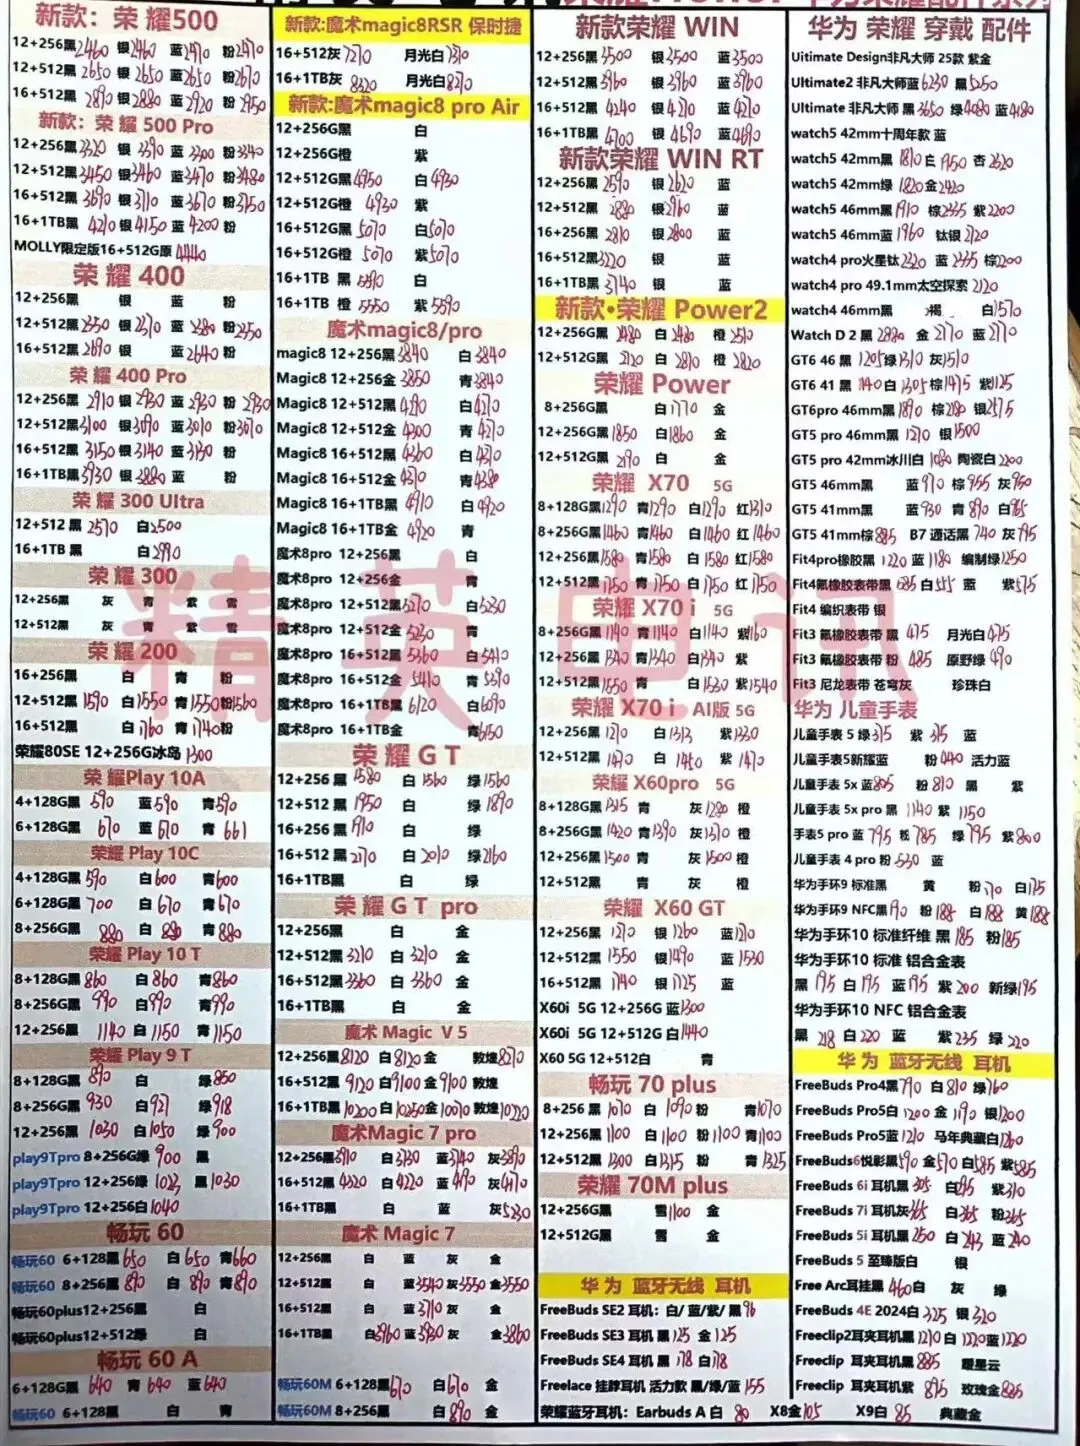 新款：荣 耀500
12+256黑2460 银2460 蓝2470 粉2470
12+512黑2650 银2650 蓝2650 粉2670
16+512黑2890 银2880 蓝2920 粉2950
新款：荣 耀 500 Pro
12+256黑3320 银3390 蓝3300 粉3340
12+512黑3450 银3460 蓝3470 粉3480
16+512黑3690 银3710 蓝3670 粉3750
16+1TB黑4210 银4150 蓝4200 粉
MOLLY限定版16+512G原4440
荣 耀 400
12+256黑 银 蓝 粉
12+512黑2350 银2370 蓝2380 粉2350
16+512黑2690 银 蓝2640 粉
荣 耀 400 Pro
12+256黑2910 银2930 蓝2930 粉2930
12+512黑3100 银3090 蓝3010 粉3070
16+512黑3150 银3140 蓝3130 粉
16+1TB黑3930 银3880 蓝 粉
荣 耀 300 Ultra
12+512 黑 2570 白2500
16+1TB 黑 白2990
荣 耀 300
12+256黑 灰 青 紫 雪
12+512黑 灰 青 紫 雪
荣 耀 200
16+256黑 白 青 粉
12+512黑1570 白1550 青1550粉1560
16+512黑 白1760 青1740粉
荣耀80SE 12+256G冰岛1300
荣 耀Play 10A
4+128G黑 590 蓝590 青590
6+128G黑 670 蓝670 青 661
荣耀 Play 10C
4+128G黑590 白600 青600
6+128G黑 700 白670 青670
8+256G黑 880 白 880 青 880
荣耀 Play 10 T
8+128G黑860 白860 青860
8+256G黑 990 白990 青990
12+256黑 1140 白 1150 青 1150
荣耀 Play 9 T
8+128G黑 890 白 绿850
8+256G黑 930 白927 绿918
12+256黑 1030 白1050 绿900
play9Tpro 8+256G绿 900 黑
play9Tpro 12+256绿 1023 黑1030
play9Tpro 12+256白1040
畅玩 60
畅玩60 6+128黑650 白650 青660
畅玩60 8+256黑 890 白 890 青 890
畅玩60plus12+256黑 白
畅玩60plus12+512绿 白
畅玩 60 A
6+128G黑 640 青 640 蓝640
畅玩60 6+128黑 白 青
新款:魔术magic8RSR 保时捷
16+512G灰 7270 月光白7370
16+1TB灰 8320 月光白8270
新款:魔术magic8 pro Air
12+256G黑 白
12+256G橙 紫
12+512G黑4950 白4930
12+512G橙 4930 紫
16+512G黑5070 白5070
16+512G橙 5070 紫5070
16+1TB 黑 5590 白
16+1TB 橙 5550 紫5590
魔术magic8/pro
magic8 12+256黑3840 白3840
Magic8 12+256金 3850 青3840
Magic8 12+512黑4290 白4270
Magic8 12+512金4300 青 4270
Magic8 16+512黑4360 白4370
Magic8 16+512金4370 青4380
Magic8 16+1TB黑4910 白4920
Magic8 16+1TB金 4920 青
魔术8pro 12+256黑 白
魔术8pro 12+256金 青
魔术8pro 12+512黑5270 白5230
魔术8pro 12+512金 5230 青
魔术8pro 16+512黑 5360 白5410
魔术8pro 16+512金 5410 青 5390
魔术8pro 16+1TB黑6120 白6090
魔术8pro 16+1TB金 青6150
荣 耀 G T
12+256 黑 1580 白 1560 绿1560
12+512 黑1950 白 绿1890
16+256 黑1910 白 绿
16+512 黑2170 白 2010 绿2160
16+1TB黑 白 绿
荣 耀 G T pro
12+256黑 白 金
12+512黑3210 白 3210 金
16+512黑3360 白 3360 金
16+1TB黑 白 金
魔术 Magic V 5
12+256黑8120 白8120金 敦煌8270
16+512黑 9120 白9100 金 9100 敦煌
16+1TB黑10200 白10250金10070敦煌10220
魔术Magic 7 pro
12+256黑3710 白3730 蓝3740 灰3890
16+512黑 4220 白4220 蓝4190 灰4170
16+1TB黑 白 蓝 灰5230
魔术 Magic 7
12+256黑 白 蓝 灰 金
12+512黑 白 蓝3540灰3550金3550
16+512黑 白 蓝3710灰 金
16+1TB黑 白3960 蓝3930灰 金3860
畅玩60M 6+128黑670 白670 金
畅玩60M 8+256黑 白890 金
新款荣耀 WIN
12+256黑3500 银3500 蓝3500
12+512黑3960 银3960 蓝3960
16+512黑 4240 银4210 蓝4210
16+1TB黑 4700 银4690 蓝4690
新款荣耀 WIN RT
12+256黑 2590 银2620 蓝
12+512黑 2880 银2960 蓝
16+256黑 2810 银2800 蓝
16+512黑3220 银 蓝
16+1TB黑 3740 银 蓝
新款•荣耀 Power2
12+256G黑 2480 白 2480 橙 2510
12+512G黑 2820 白 2810 橙 2820
荣耀 Power
8+256G黑 白1770 金
12+256G黑1850 白1860 金
12+512G黑 2190 白 金
荣耀 X70 5G
8+128G黑1290 青1290 白1290 红1310
8+256G黑1460 青1460 白1460 红1460
12+256黑1580 青1580 白1580 红1580
12+512黑1750 青1750 白1750 红1750
荣耀 X70 i 5G
8+256G黑1140 青1140 白1140 紫1160
12+256黑 1340 青1340 白1340 紫
12+512黑1550 青 白1530 紫1540
荣耀 X70 i AI版 5G
12+256黑 1270 白1313 紫1330
12+512黑 1470 白 1450 紫1470
荣耀 X60pro 5G
8+128G黑1315 青 灰1280 橙
8+256G黑1420 青1390 灰1370 橙
12+256黑1500 青 灰1500 橙
12+512黑 青 灰 橙
荣耀 X60 GT
12+256黑 1270 银1260 蓝1210
12+512黑 1550 银1490 蓝 1530
16+512黑 1740 银1725 蓝
X60i 5G 12+256G 蓝1300
X60i 5G 12+512G 白1440
X60 5G 12+512白 青
畅玩 70 plus
8+256 黑 1070 白 1090粉 青1070
12+256黑1100 白1100 粉1100青1100
12+512黑 1300 白1315 粉 青 1325
荣耀 70M plus
12+256G黑 雪1100 金
12+512G黑 雪 金
华 为 蓝牙无线 耳机
FreeBuds SE2 耳机：白/ 蓝/紫/ 黑96
FreeBuds SE3 耳机 黑125 金125
FreeBuds SE4 耳机 黑 178 白178
Freelace 挂脖耳机 活力款 黑/绿/蓝 155
荣耀蓝牙耳机：Earbuds A 白 80 X8金105 X9白 85 典藏金
华为 荣耀 穿戴 配件
Uitimate Design非凡大师 25款 紫金
Ultimate2 非凡大师蓝6230 黑5250
Ultimate 非凡大师 黑 3650 绿4080 蓝4180
watch5 42mm十周年款 蓝
watch5 42mm黑 1810 白 1950 杏2320
watch5 42mm绿 1820金2420
watch5 46mm黑1910 棕2335 紫2200
watch5 46mm蓝1960 钛银2120
watch4 pro火星钛2320 蓝 2335 棕2200
watch4 pro 49.1mm太空探索 2120
watch4 46mm黑 褐 白1570
Watch D 2 黑 2880 金 2770 蓝2770
GT6 46 黑 1205绿1310 灰1510
GT6 41 黑 1140白 1305棕1475 紫1125
GT6pro 46mm黑1890 棕2180 银2175
GT5 pro 46mm黑 1270 银1500
GT5 pro 42mm冰川白 1080 陶瓷白2200
GT5 46mm黑 蓝970 棕955 灰950
GT5 41mm黑 蓝930 青 890 白965
GT5 41mm棕885 B7 通话黑 740 灰 795
Fit4pro橡胶黑 1220 蓝 1180 编制绿1250
Fit4氟橡胶表带黑 635白555 蓝 紫575
Fit4 编织表带 银
Fit3 氟橡胶表带 黑 475 月光白475
Fit3 氟橡胶表带 粉 485 原野绿490
Fit3 尼龙表带 苍穹灰 珍珠白
华为 儿童手表
儿童手表 5 绿375 紫375 蓝
儿童手表5新耀蓝 粉 440 活力蓝
儿童手表 5x 蓝805 粉 810 黑 紫
儿童手表 5x pro 黑 1140 紫 1150
手表5 pro 蓝 795 粉 785 绿 795 紫800
儿童手表 4 pro 粉 530 蓝
华为手环9 标准黑 黄 粉170 白175
华为手环9 NFC黑190 粉 188 白188 黄188
华为手环10 标准纤维 黑 185 粉185
华为手环10 标准 铝合金表
黑 195 白195 蓝195 紫 200 新绿195
华为手环10 NFC 铝合金表
黑 218 白 220 蓝 紫 235 绿 220
华 为 蓝牙无线 耳机
FreeBuds Pro4黑790 白810 绿760
FreeBuds Pro5白 1200 金 1190 银1200
FreeBuds Pro5蓝1210 马年典藏白1260
FreeBuds6悦彰黑590 金570 白585 紫585
FreeBuds 6i 耳机黑 305 白295 紫310
FreeBuds 7i 耳机灰365 白365 粉365
FreeBuds 5i 耳机黑 250 白 243 蓝240
FreeBuds 5 至臻版白 银
Free Arc耳挂黑 460白 灰 绿
FreeBuds 4E 2024白 325 银 320
Freeclip2耳夹耳机黑1210 白 1220蓝1220
Freeclip 耳夹耳机黑885 星云
Freeclip 耳夹耳机紫 895 玫瑰金885
精英电讯